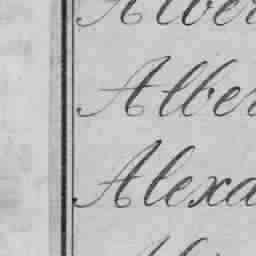 Alber
Alber
Alexa